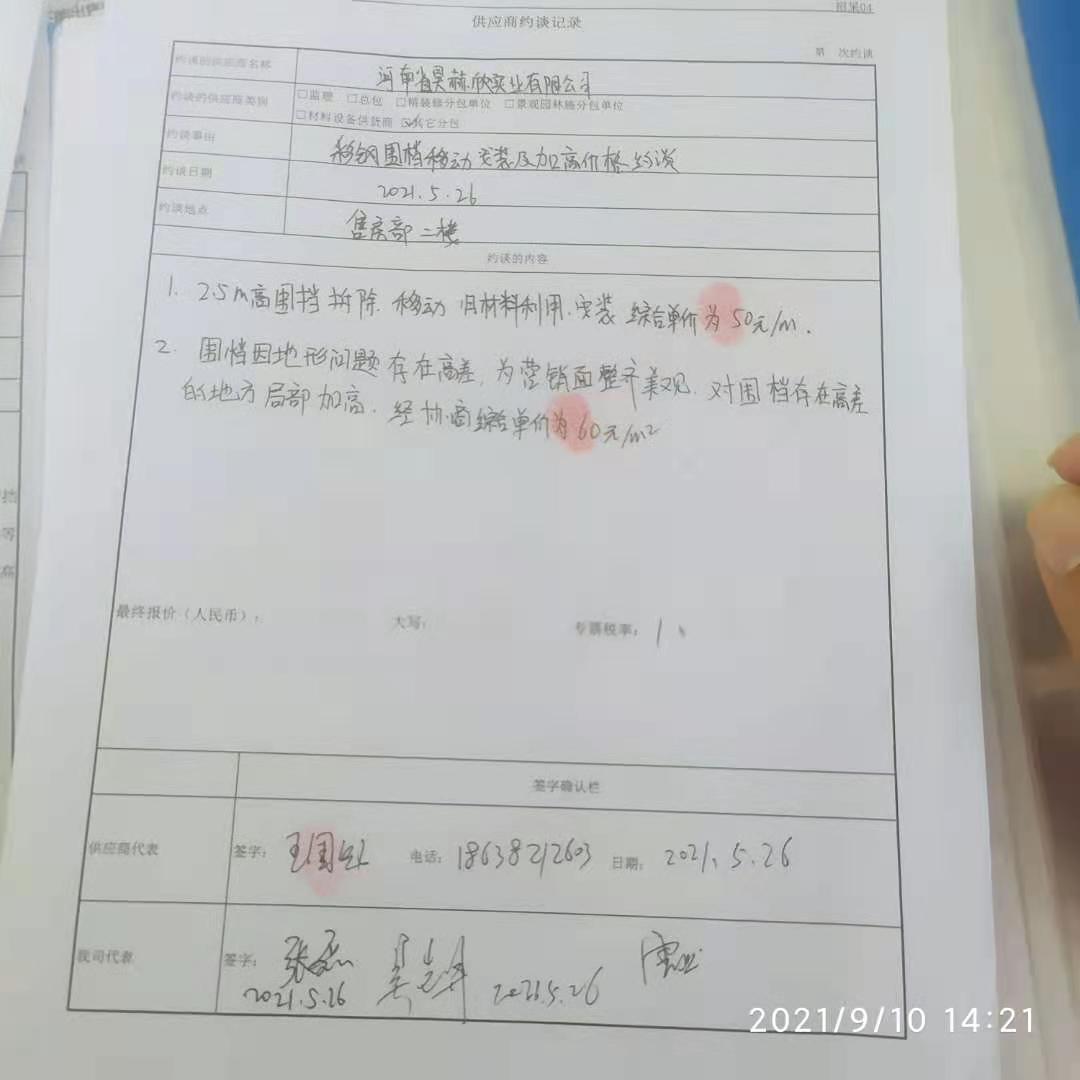 招采04
供应商约谈记录
第 次约谈
约谈的供应商名称 河南省昊赫欣实业有限公司
约谈的供应商类别 □监理 □总包 □精装修分包单位 □景观园林施分包单位
□材料设备供货商 ☑其它分包
约谈事由 彩钢围档移动安装及加高价格约谈
约谈日期 2021.5.26
约谈地点 售房部二楼
约谈的内容
1. 2.5m高围挡拆除.移动 旧材料利用.安装 综合单价为50元/m.
2. 围档因地形问题存在高差,为营销面整齐美观.对围档存在高差
的地方局部加高.经协商综合单价为60元/m²
最终报价(人民币): 大写: 专票税率:
签字确认栏
供应商代表 签字: 电话:18638212603 日期: 2021.5.26
我司代表 签字:
2021.5.26 2021.5.26
2021/9/10 14:21